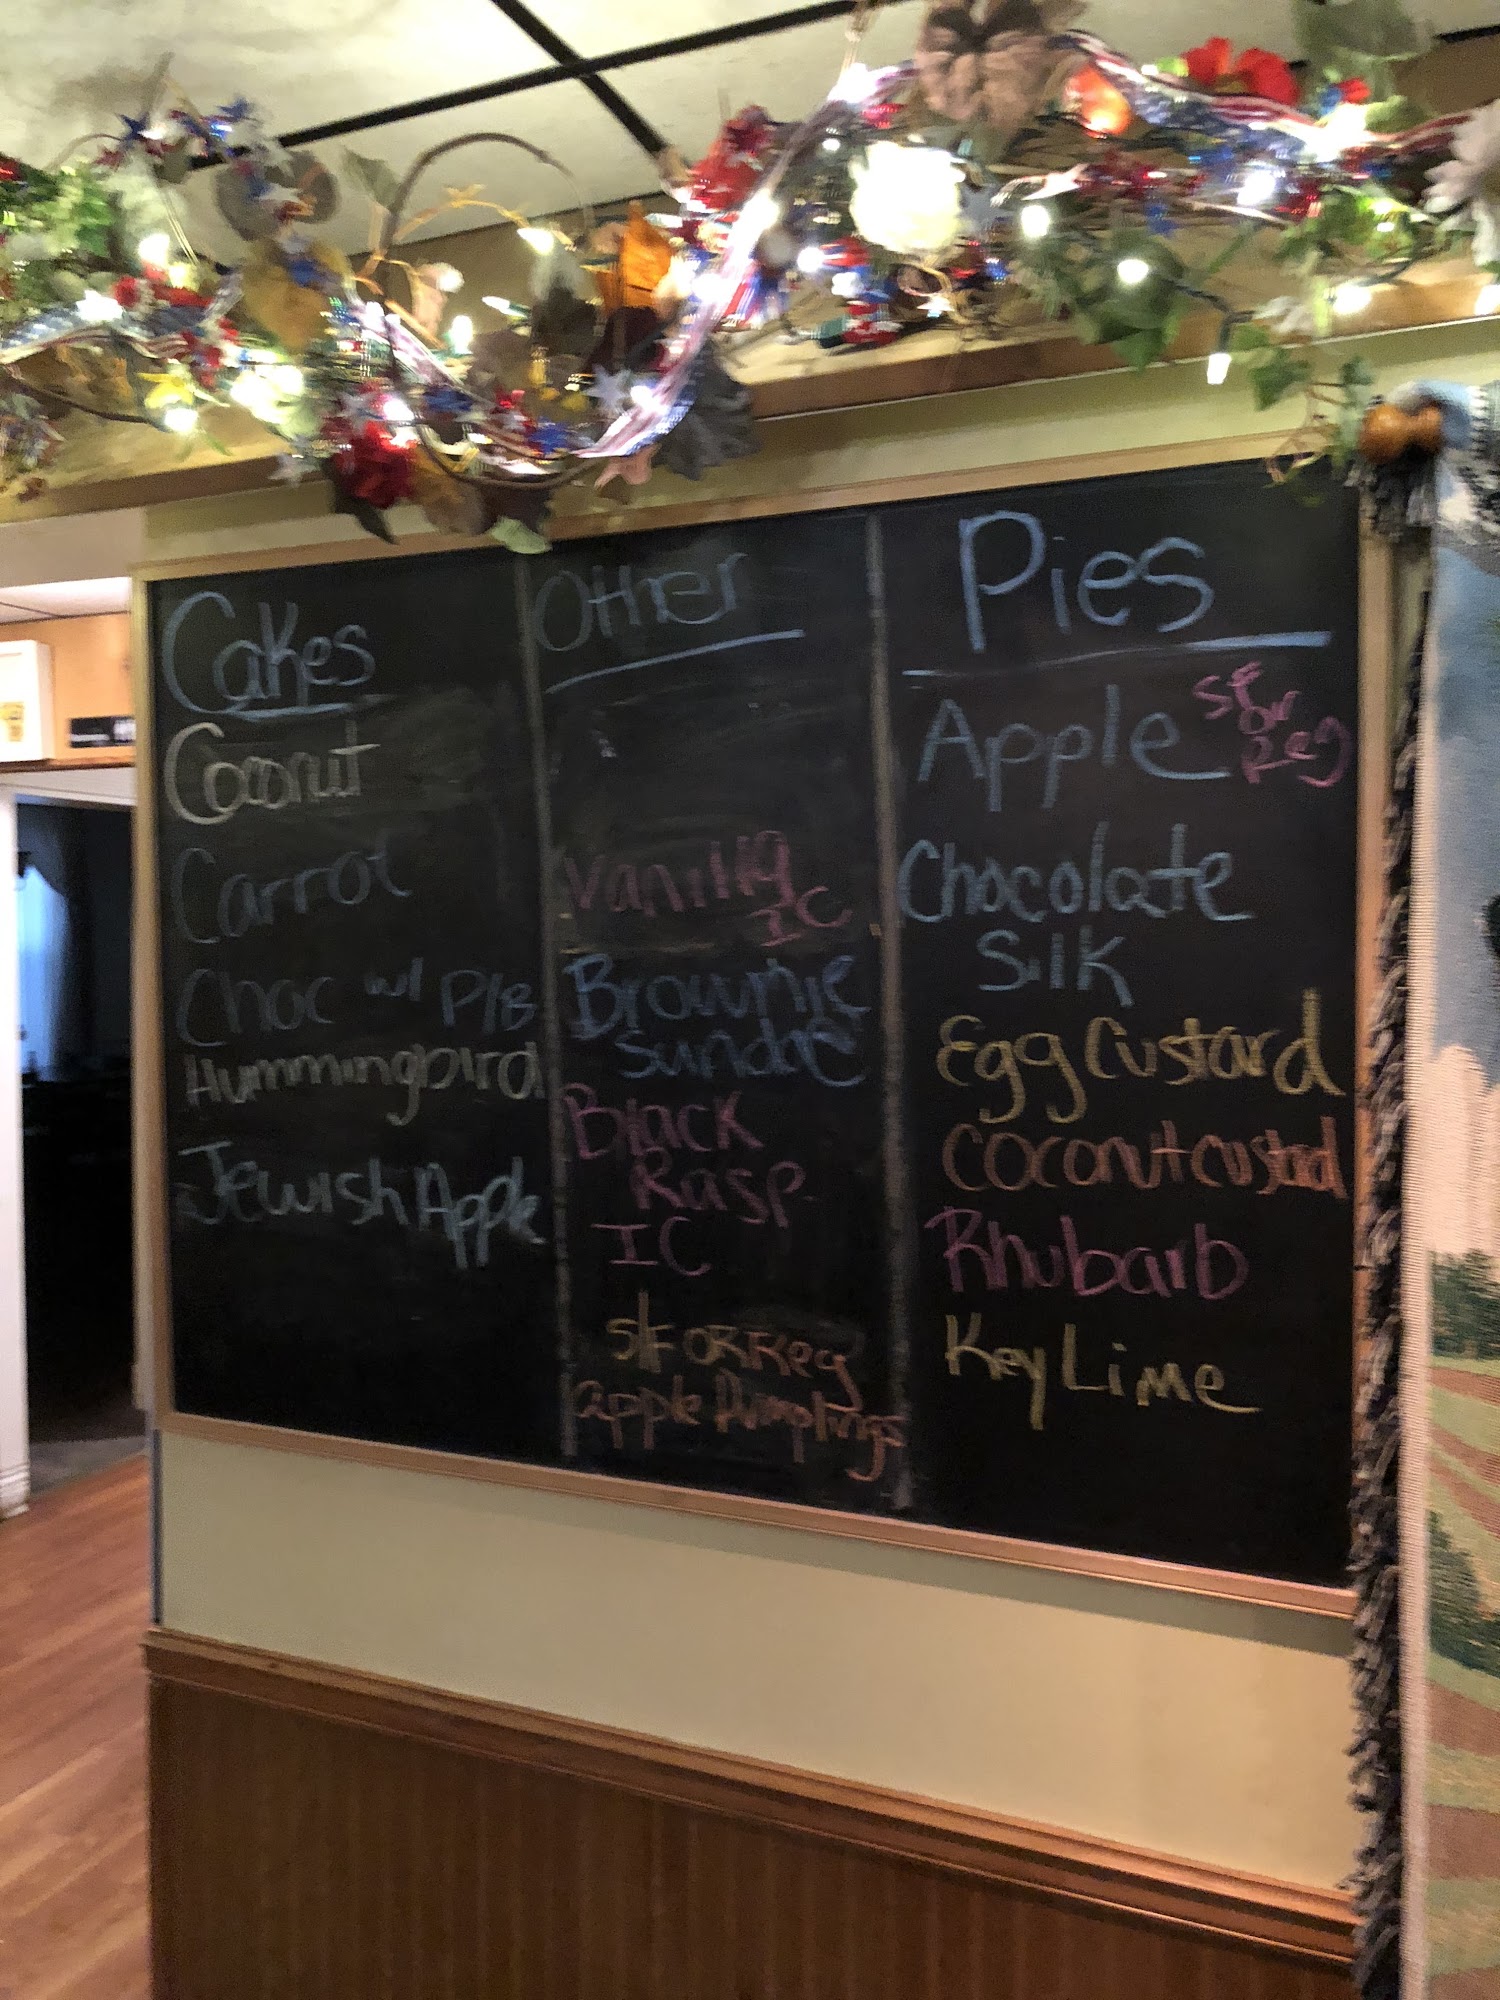 Cakes
Coconut
Carrot
Choc w/ P/B
Hummingbird
Jewish Apple
Other
Vanilla
IC
Brownie
sundae
Black
Rasp.
IC
S/F OR Reg
apple Dumplings
Pies
Apple SF or Reg
Chocolate
Silk
Egg Custard
Coconut custard
Rhubarb
Key Lime